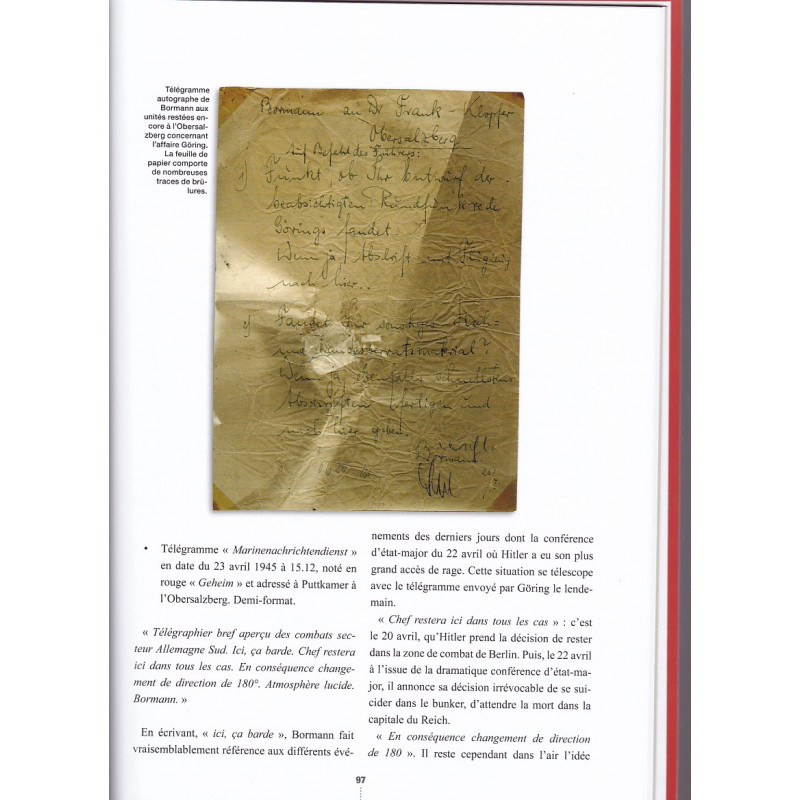 Télégramme
autographe de
Bormann aux
unités restées en-
core à l'Obersal-
zberg concernant
l'affaire Göring.
La feuille de
papier comporte
de nombreuses
traces de brû-
lures.
Bormann an Dr Frank - Klopfer
Obersalzberg
Auf Befehl des Führers:
1) Funkt, ob Ihr Entwurf der
beabsichtigten Rundfunkrede
Görings fandet.
Wenn ja, Abschrift
nach hier.
2) Fandet Ihr sonstiges
und Landesverratsmaterial?
Wenn ja, ebenfalls schnellstens
Abschriften fertigen und
nach hier geben.
Bormann
• Télégramme « Marinenachrichtendienst »
en date du 23 avril 1945 à 15.12, noté en
rouge « Geheim » et adressé à Puttkamer à
l'Obersalzberg. Demi-format.
« Télégraphier bref aperçu des combats sec-
teur Allemagne Sud. Ici, ça barde. Chef restera
ici dans tous les cas. En conséquence change-
ment de direction de 180°. Atmosphère lucide.
Bormann. »
En écrivant, « ici, ça barde », Bormann fait
vraisemblablement référence aux différents évé-
nements des derniers jours dont la conférence
d'état-major du 22 avril où Hitler a eu son plus
grand accès de rage. Cette situation se télescope
avec le télégramme envoyé par Göring le lende-
main.
« Chef restera ici dans tous les cas » : c'est
le 20 avril, qu'Hitler prend la décision de rester
dans la zone de combat de Berlin. Puis, le 22 avril
à l'issue de la dramatique conférence d'état-ma-
jor, il annonce sa décision irrévocable de se sui-
cider dans le bunker, d'attendre la mort dans la
capitale du Reich.
« En conséquence changement de direction
de 180 ». Il reste cependant dans l'air l'idée
97